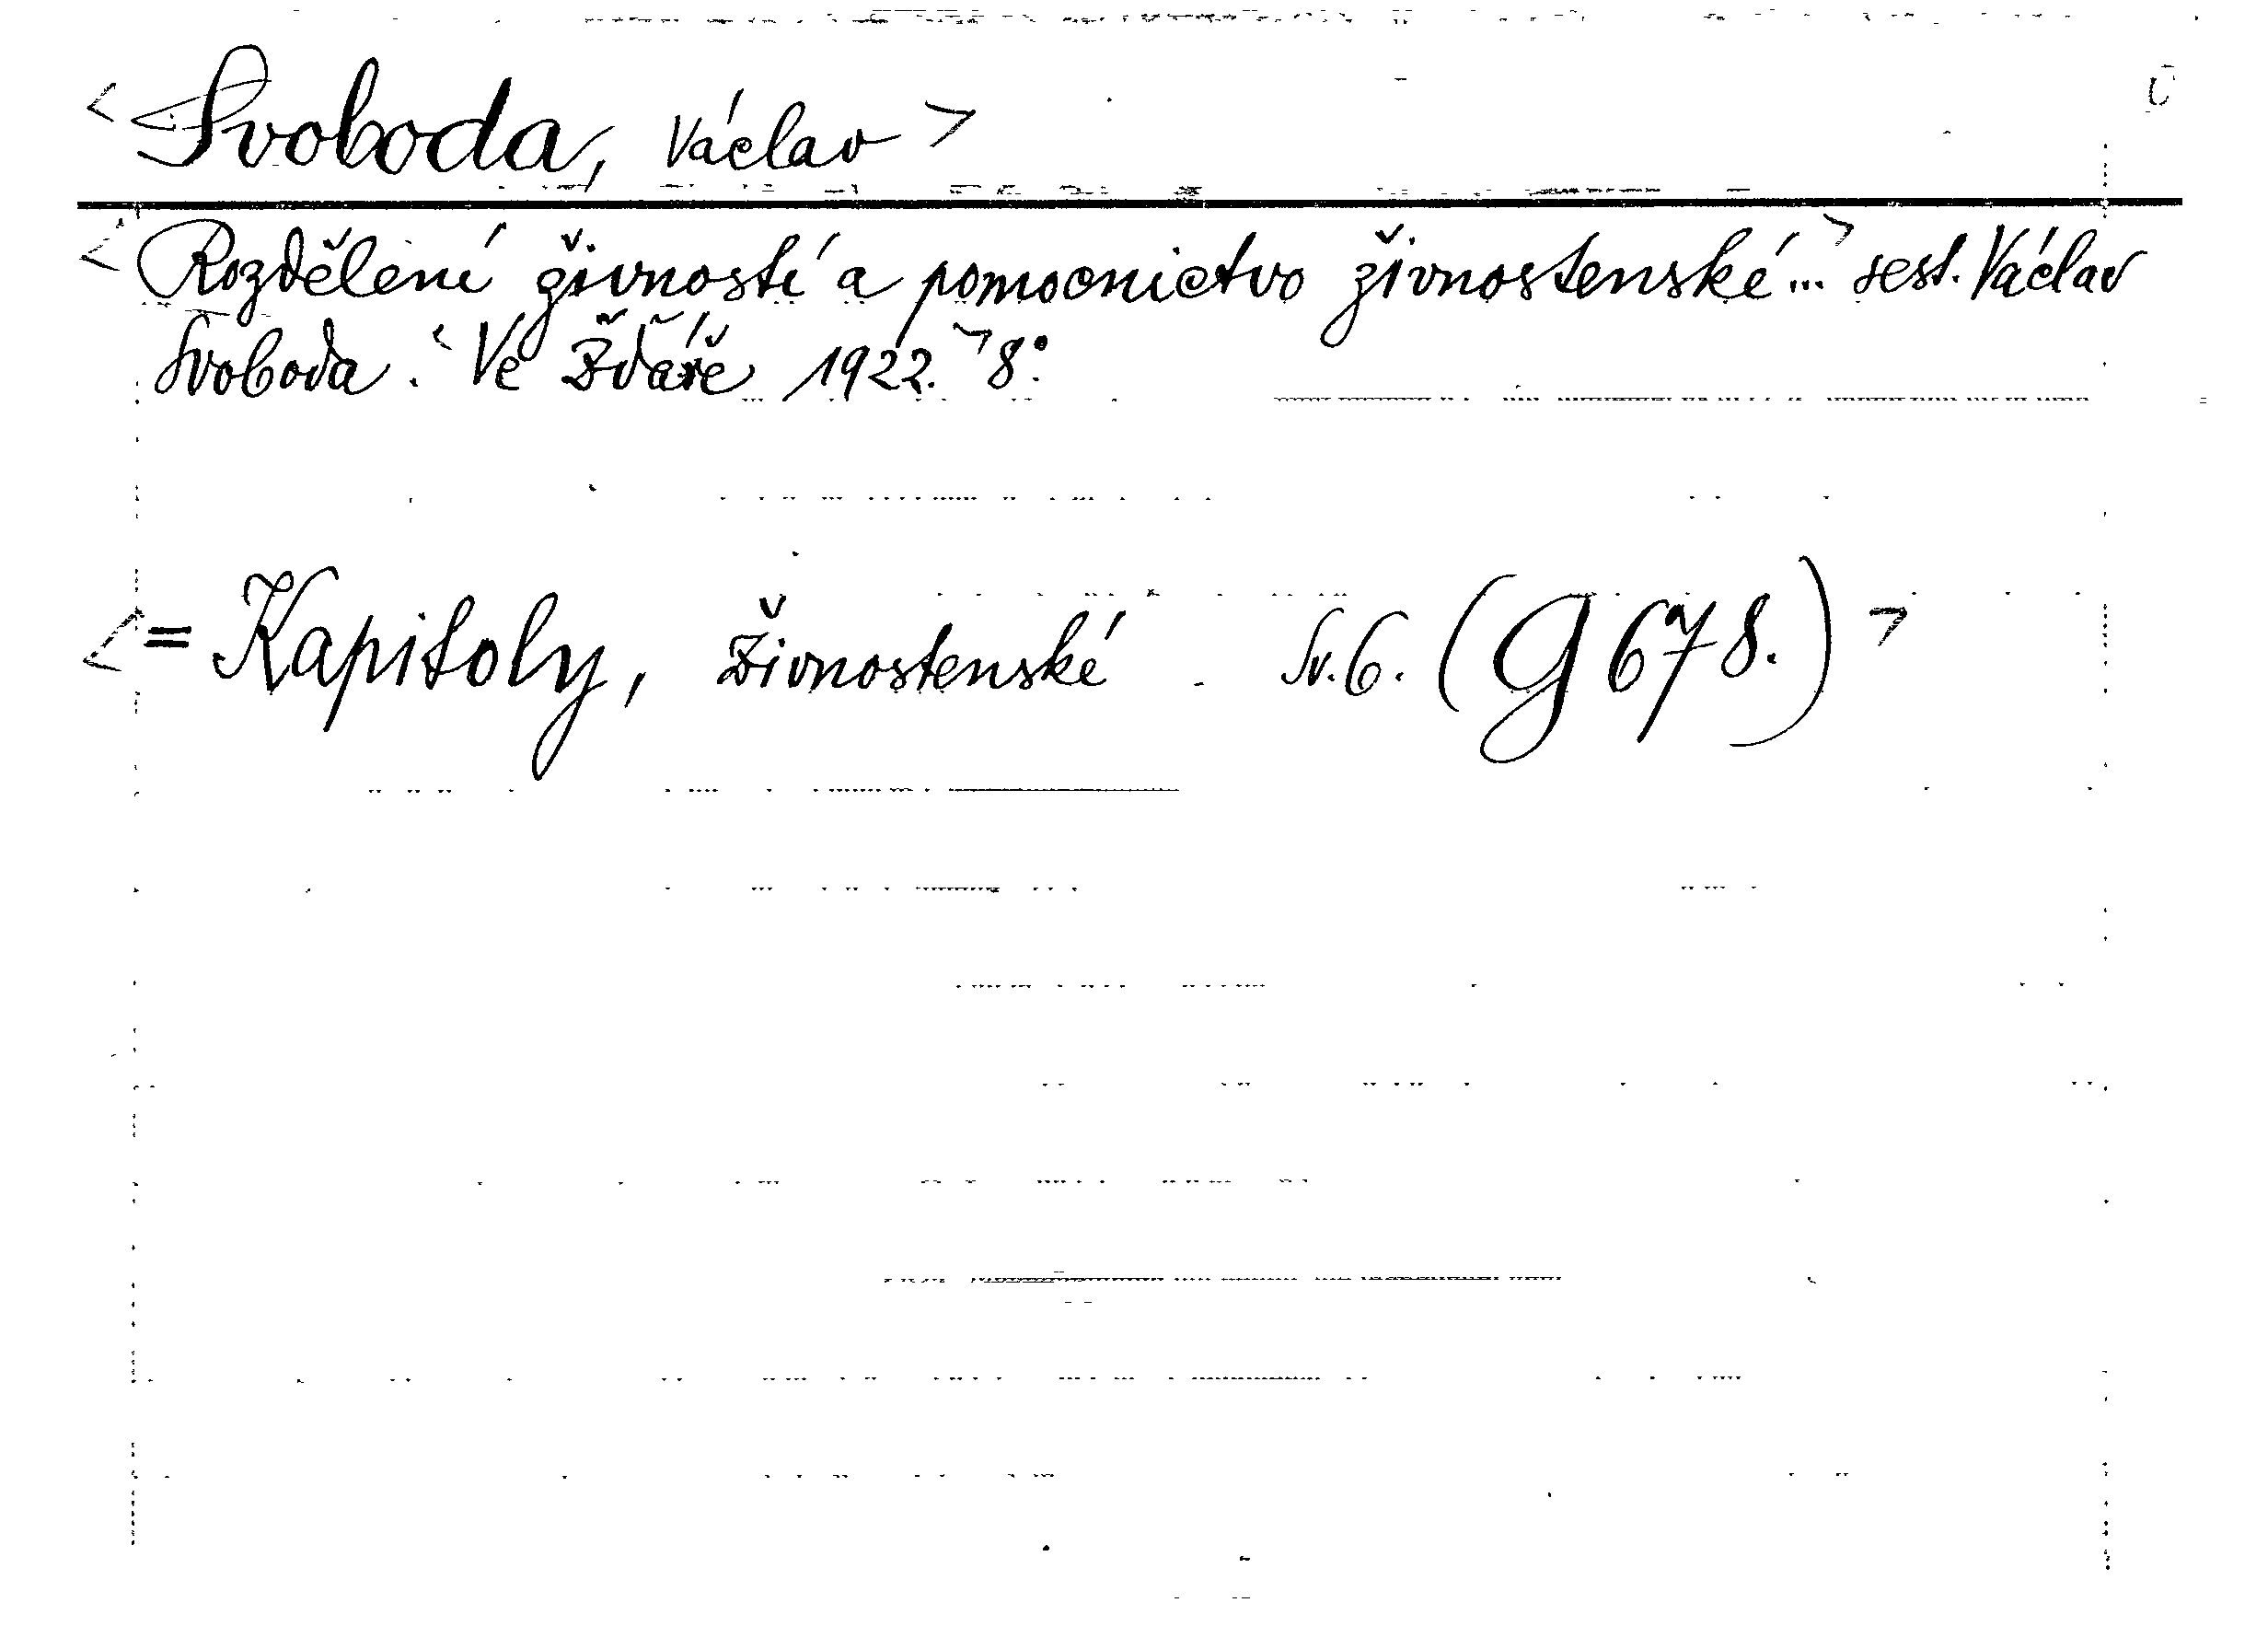 < Svoboda, Václav >
< Rozdělení živností a pomocnictvo živnostenské...> sest. Václav
Svoboda. < Ve Žďáře 1922. > 8°.
< = Kapitoly, živnostenské. Sv. 6. (G 678.) >